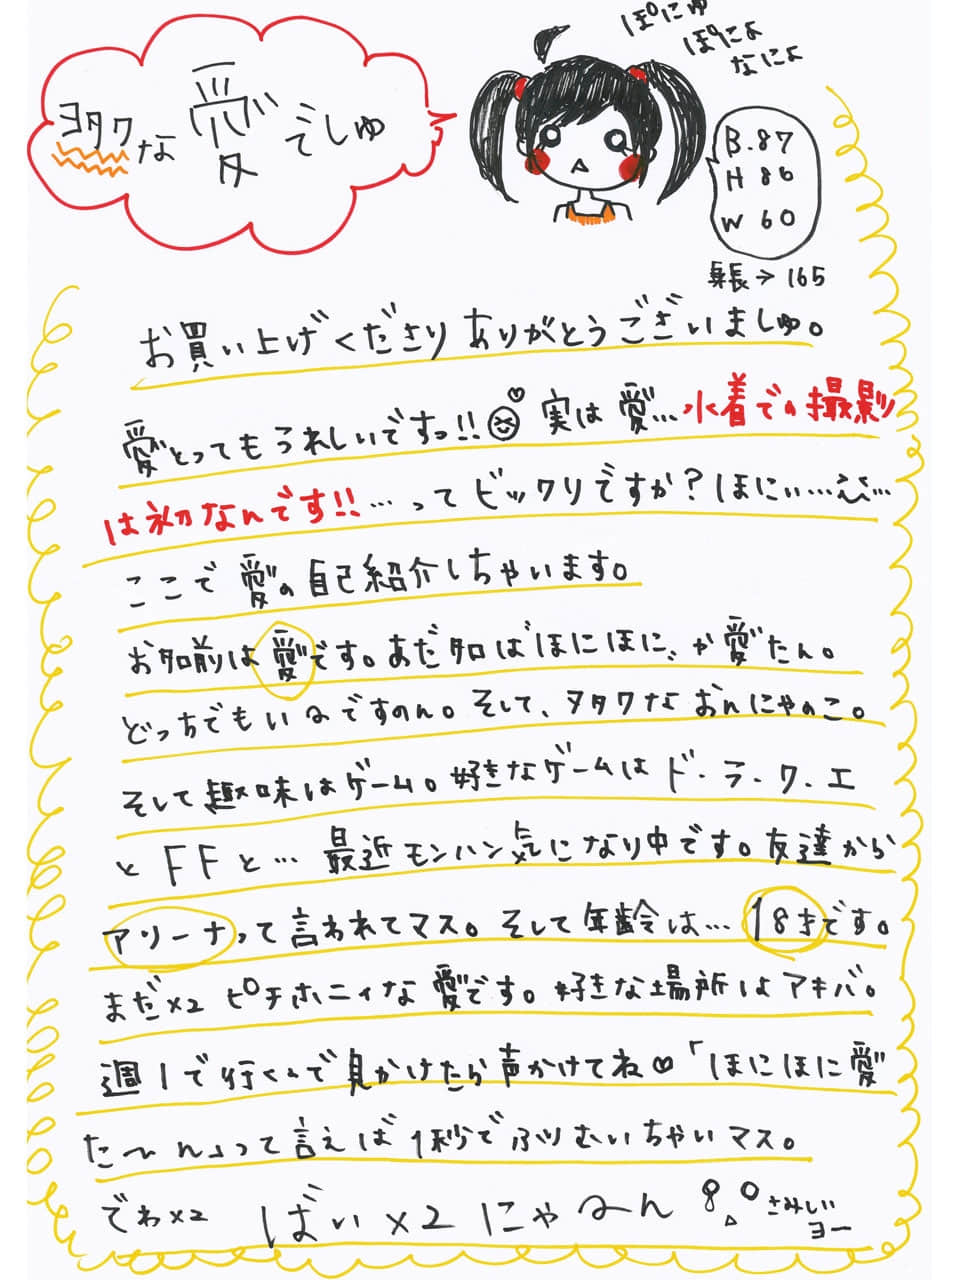 ヨタクな愛でしゅ
ぽにゅ
ぽにょ
なにょ
B.87
H 86
W 60
身長→165
お買い上げくださりありがとうございましゅ。
愛とってもうれしいですっ!! 実は愛…水着での撮影
は初なんです!!…ってビックリですか?ほにぃ…
ここで愛の自己紹介しちゃいます。
お名前は愛です。あだ名はほにほに、か愛たん。
どっちでもいみですのん。そして、ヲタクなおんにゃのこ。
そして趣味はゲーム。好きなゲームはド・ラ・ク・エ
とFFと…最近モンハン気になり中です。友達から
アリーナって言われてマス。そして年齢は…18才です。
まだ×2ピチホニィな愛です。好きな場所はアキバ。
週1で行くので見かけたら声かけてね♡「ほにほに愛
た〜ん」って言えば1秒でふりむいちゃいマス。
でわ×2 ばい×2にゃーん
さみしい
ヨー